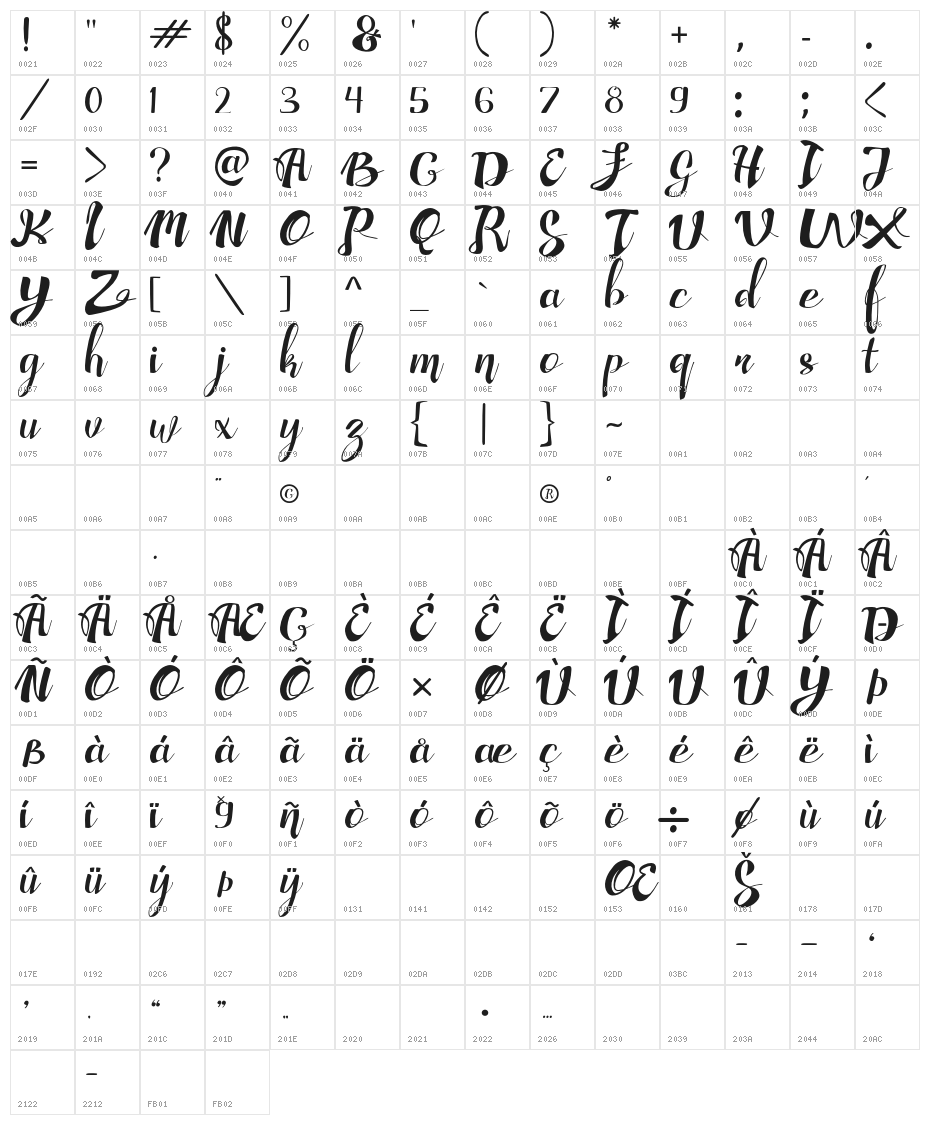 ! " # $ % & ' ( ) * + , - .
0021 0022 0023 0024 0025 0026 0027 0028 0029 002A 002B 002C 002D 002E
/ 0 1 2 3 4 5 6 7 8 9 : ; <
002F 0030 0031 0032 0033 0034 0035 0036 0037 0038 0039 003A 003B 003C
= > ? @ A B C D E F G H I J
003D 003E 003F 0040 0041 0042 0043 0044 0045 0046 0047 0048 0049 004A
K L M N O P Q R S T U V W X
004B 004C 004D 004E 004F 0050 0051 0052 0053 0054 0055 0056 0057 0058
Y Z [ \ ] ^ _ ` a b c d e f
0059 005A 005B 005C 005D 005E 005F 0060 0061 0062 0063 0064 0065 0066
g h i j k l m n o p q r s t
0067 0068 0069 006A 006B 006C 006D 006E 006F 0070 0071 0072 0073 0074
u v w x y z { | } ~
0075 0076 0077 0078 0079 007A 007B 007C 007D 007E 00A1 00A2 00A3 00A4
¨ © ® ° ´
00A5 00A6 00A7 00A8 00A9 00AA 00AB 00AC 00AE 00B0 00B1 00B2 00B3 00B4
· À Á Â
00B5 00B6 00B7 00B8 00B9 00BA 00BB 00BC 00BD 00BE 00BF 00C0 00C1 00C2
Ã Ä Å Æ Ç È É Ê Ë Ì Í Î Ï Ð
00C3 00C4 00C5 00C6 00C7 00C8 00C9 00CA 00CB 00CC 00CD 00CE 00CF 00D0
Ñ Ò Ó Ô Õ Ö × Ø Ù Ú U Û Ý Þ
00D1 00D2 00D3 00D4 00D5 00D6 00D7 00D8 00D9 00DA 00DB 00DC 00DD 00DE
ß à á â ã ä å æ ç è é ê ë ì
00DF 00E0 00E1 00E2 00E3 00E4 00E5 00E6 00E7 00E8 00E9 00EA 00EB 00EC
í î ï ğ ñ ò ó ô õ ö ÷ ø ù ú
00ED 00EE 00EF 00F0 00F1 00F2 00F3 00F4 00F5 00F6 00F7 00F8 00F9 00FA
û ü ý þ ÿ Œ Š
00FB 00FC 00FD 00FE 00FF 0131 0141 0142 0152 0153 0160 0161 0178 017D
– — ‘
017E 0192 02C6 02C7 02D8 02D9 02DA 02DB 02DC 02DD 03BC 2013 2014 2018
’ ‚ “ ” „ • …
2019 201A 201C 201D 201E 2020 2021 2022 2026 2030 2039 203A 2044 20AC
−
2122 2212 FB01 FB02